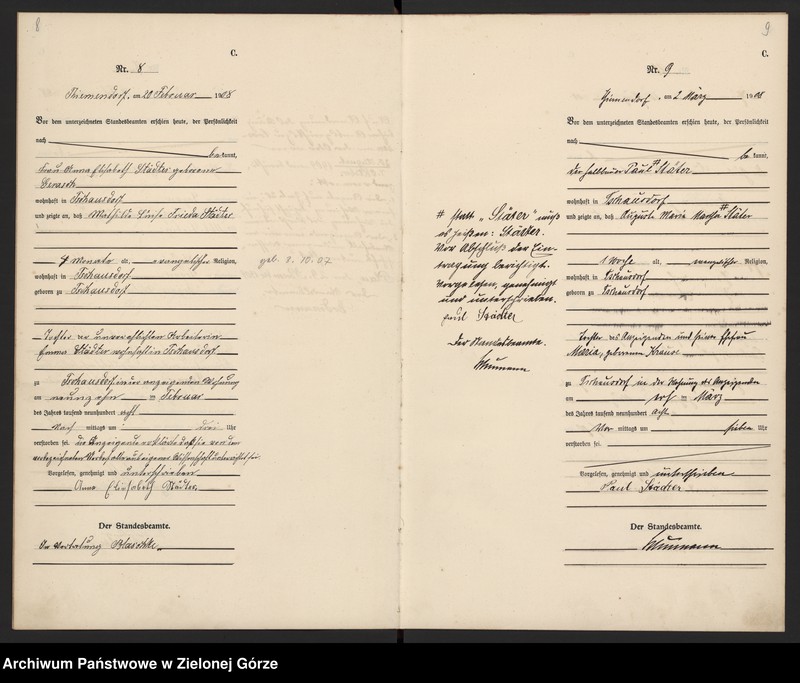 8
C.
Nr. 8
Thiemendorf, am 20 Februar 1908
Vor dem unterzeichneten Standesbeamten erschien heute, der Persönlichkeit
nach
bekannt,
Frau Anna Elisabeth Städter geborene
wohnhaft in Tschausdorf
und zeigte an, daß Mathilde Linse Frieda Städter
4 Monate alt, evangelischer Religion,
geb. 8.10.07
wohnhaft in Tschausdorf
geboren zu Tschausdorf
Tochter der unverehelichten Arbeiterin
Emma Städter wohnhaft in Tschausdorf
zu Tschausdorf in der anzeigenden Wohnung
am neunzehn ten Februar
des Jahres tausend neunhundert acht
Nach mittags um drei Uhr
verstorben sei. Die Anzeigende erklärte daß sie von dem
unterrichtet sei.
Vorgelesen, genehmigt und unterschrieben
Anna Elisabeth Städter.
Der Standesbeamte.
In Vertretung Blaschke
9
C.
Nr. 9
Thiemendorf, am 2 März 1908
Vor dem unterzeichneten Standesbeamten erschien heute, der Persönlichkeit
nach
bekannt,
der Halbbauer Paul # Stäter
wohnhaft in Tschausdorf
und zeigte an, daß Auguste Maria Martha # Stäter
1 Woche alt, evangelischer Religion,
wohnhaft in Tschausdorf
geboren zu Tschausdorf
Tochter des Anzeigenden und seiner Ehefrau
Maria, geborenen Krause
zu Tschausdorf in der Wohnung des Anzeigenden
am ersten März
des Jahres tausend neunhundert acht
Vor mittags um sieben Uhr
verstorben sei.
Vorgelesen, genehmigt und unterschrieben
Paul Städter
Der Standesbeamte.
# statt „Stäter" muß
es heißen: Städter.
Vor Abschluß der Ein-
tragung berichtigt.
Vorgelesen, genehmigt
und unterschrieben.
Paul Städter
Der Standesbeamte.
Archiwum Państwowe w Zielonej Górze